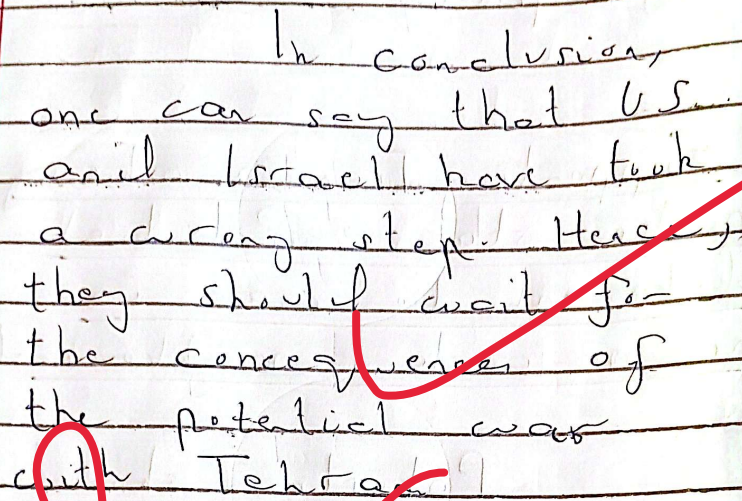 In conclusion,
one can say that US
and Israel have took
a wrong step. Hence,
they should wait for
the concequences of
the potential war
with Tehran